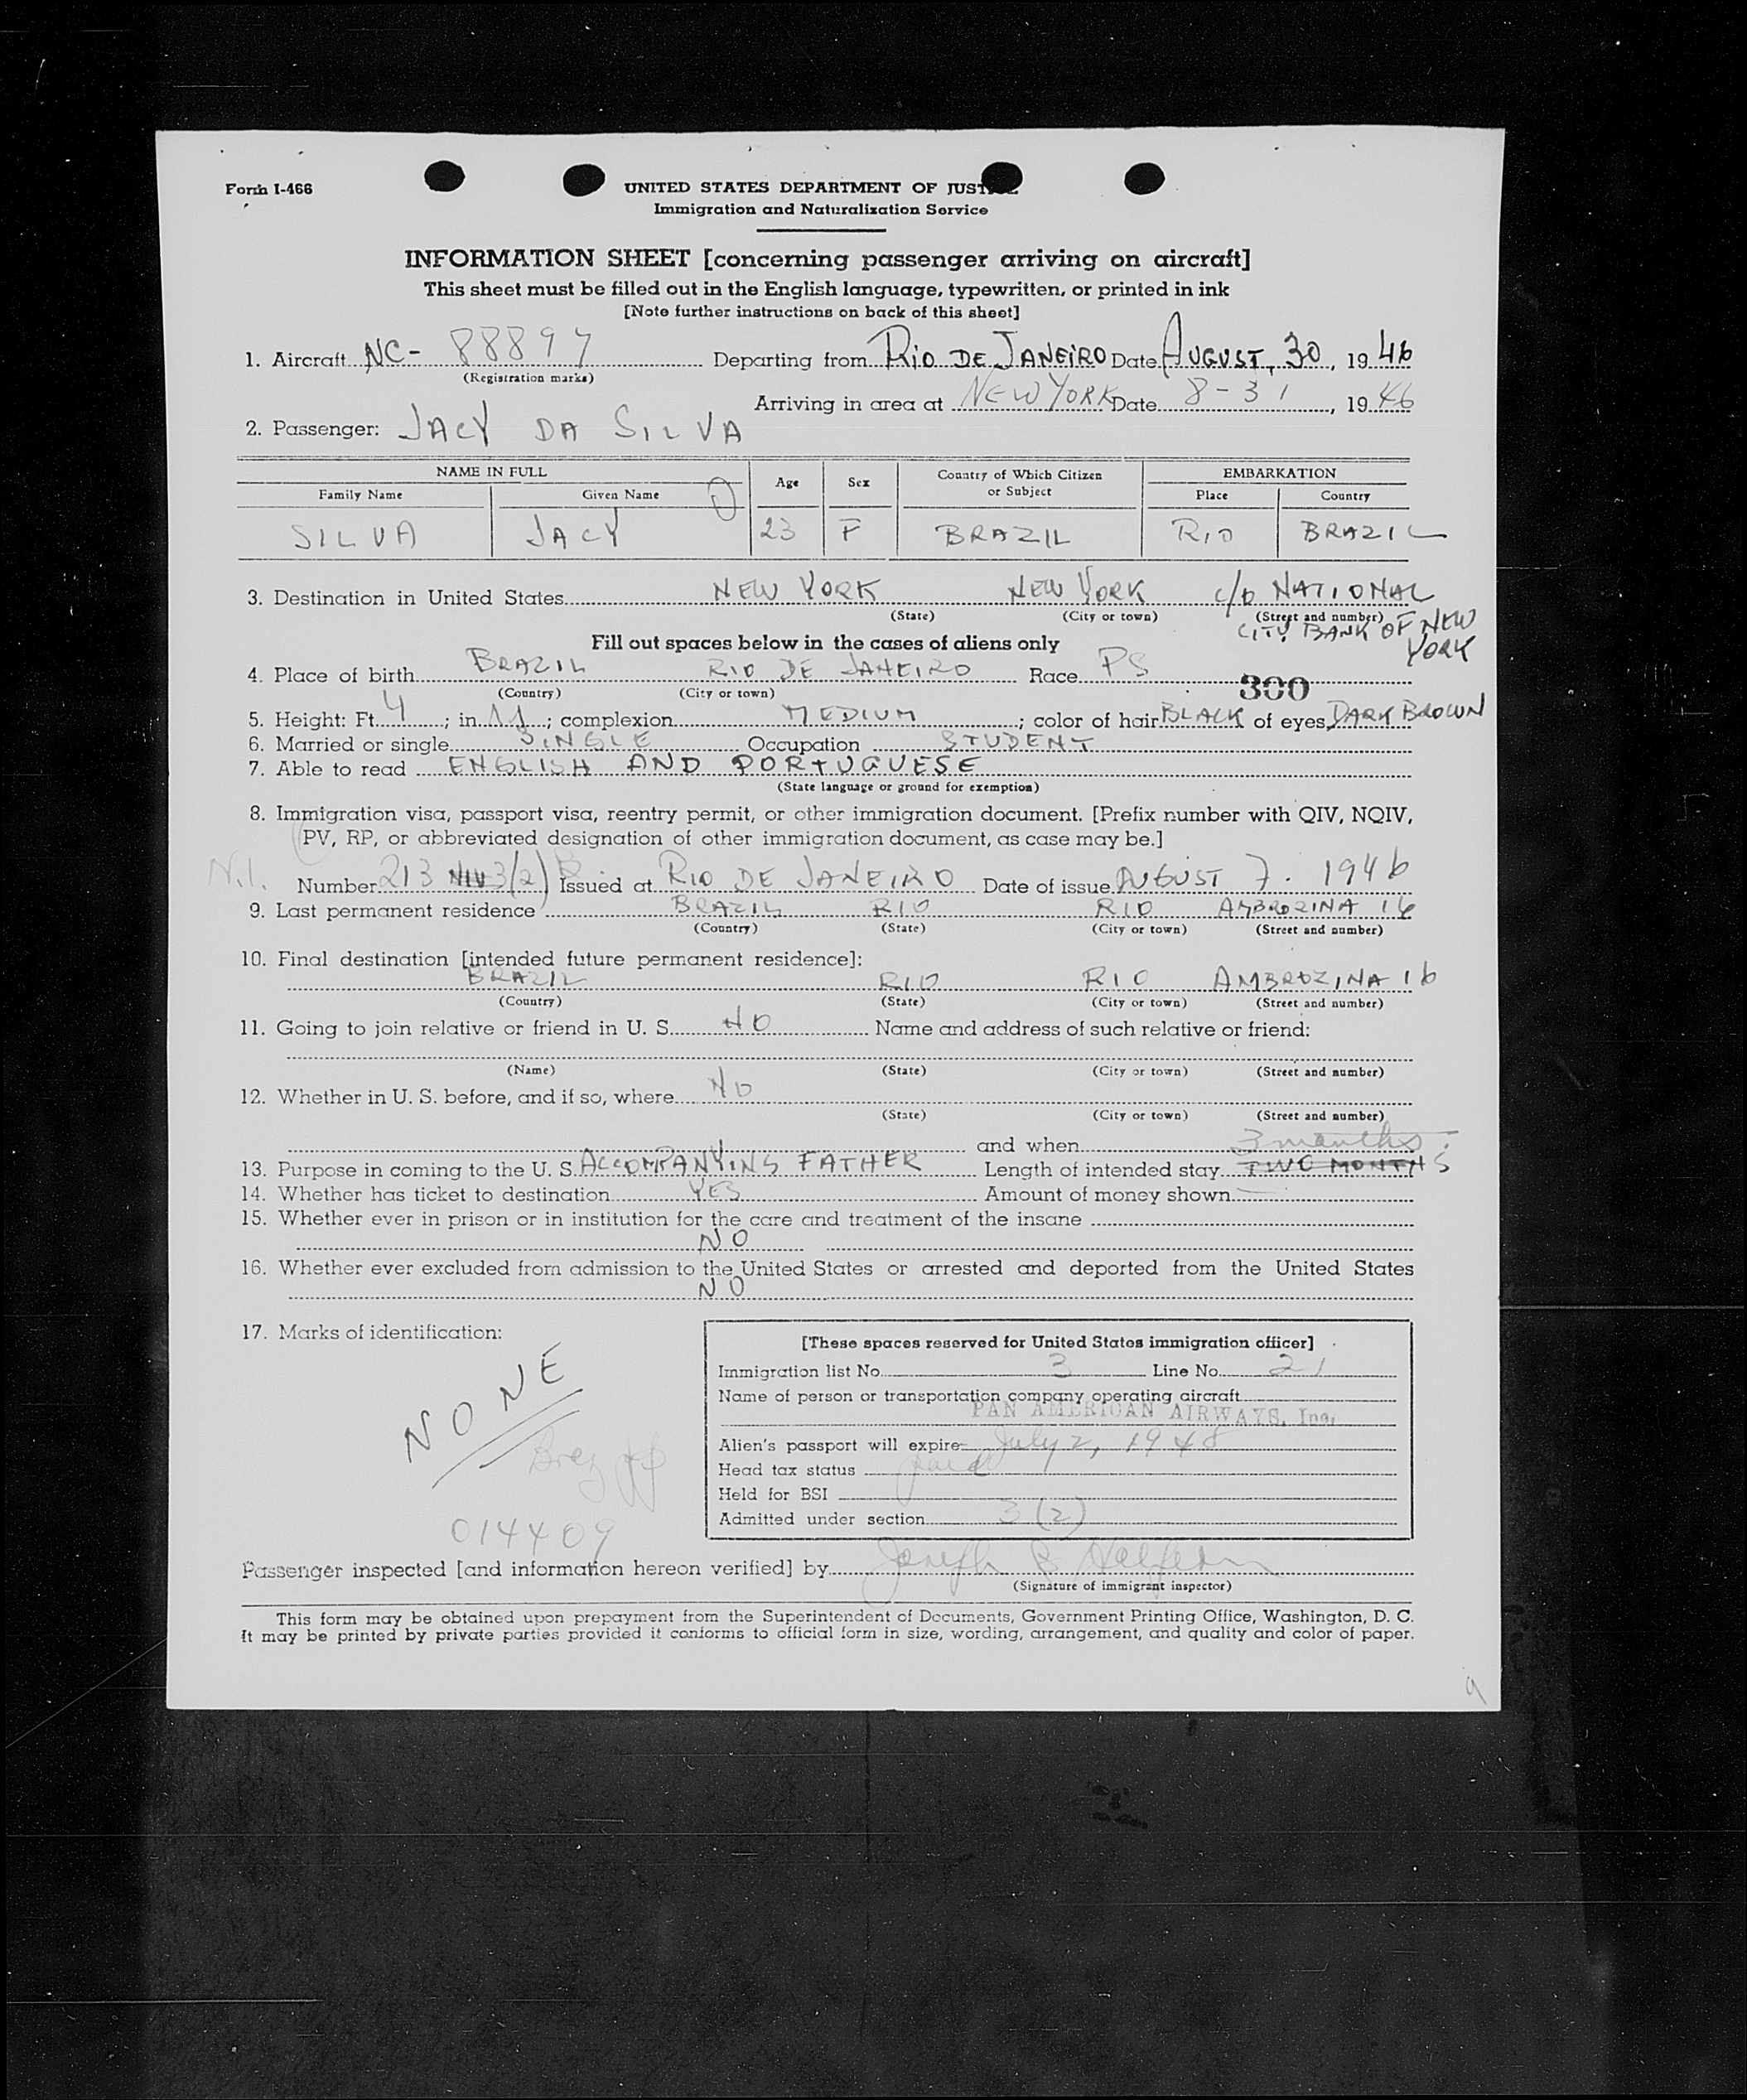 Form I-466
UNITED STATES DEPARTMENT OF
Immigration and Naturalization Service
INFORMATION SHEET [concerning passenger arriving on aircraft]
This sheet must be filled out in the English language, typewritten, or printed in ink
[Note further instructions on back of this sheet]
1. Aircraft NC- 88897 Departing from RIO DE JANEIRO Date AUGUST, 30, 1946
(Registration marks)
Arriving in area at NEW YORK Date 8-31, 1946
2. Passenger: JACY DA SILVA
NAME IN FULL Age Sex Country of Which Citizen or Subject EMBARKATION
Family Name Given Name Place Country
SILVA JACY 23 F BRAZIL RIO BRAZIL
3. Destination in United States NEW YORK NEW YORK c/o NATIONAL
(State) (City or town) (Street and number)
CITY BANK OF NEW
YORK
Fill out spaces below in the cases of aliens only
4. Place of birth BRAZIL RIO DE JANEIRO Race PS
(Country) (City or town)
300
5. Height: Ft. 4; in. 11; complexion MEDIUM; color of hair BLACK of eyes DARK BROWN
6. Married or single SINGLE Occupation STUDENT
7. Able to read ENGLISH AND PORTUGUESE
(State language or ground for exemption)
8. Immigration visa, passport visa, reentry permit, or other immigration document. [Prefix number with QIV, NQIV,
PV, RP, or abbreviated designation of other immigration document, as case may be.]
N.I. Number 213 NIV 3(2) Issued at RIO DE JANEIRO Date of issue AUGUST 7. 1946
9. Last permanent residence BRAZIL RIO RIO AMBROZINA 16
(Country) (State) (City or town) (Street and number)
10. Final destination [intended future permanent residence]:
BRAZIL RIO RIO AMBROZINA 16
(Country) (State) (City or town) (Street and number)
11. Going to join relative or friend in U. S. NO Name and address of such relative or friend:
(Name) (State) (City or town) (Street and number)
12. Whether in U. S. before, and if so, where NO
(State) (City or town) (Street and number)
and when
3 months
13. Purpose in coming to the U. S. ACCOMPANYING FATHER Length of intended stay TWO MONTHS
14. Whether has ticket to destination YES Amount of money shown —
15. Whether ever in prison or in institution for the care and treatment of the insane
NO
16. Whether ever excluded from admission to the United States or arrested and deported from the United States
NO
17. Marks of identification:
NONE
Braz pp
014409
[These spaces reserved for United States immigration officer]
Immigration list No. 3 Line No. 21
Name of person or transportation company operating aircraft
PAN AMERICAN AIRWAYS, Inc.
Alien's passport will expire July 2, 1948
Head tax status paid
Held for BSI
Admitted under section 3(2)
Passenger inspected [and information hereon verified] by Joseph B. Halfern
(Signature of immigrant inspector)
This form may be obtained upon prepayment from the Superintendent of Documents, Government Printing Office, Washington, D. C.
It may be printed by private parties provided it conforms to official form in size, wording, arrangement, and quality and color of paper.
9